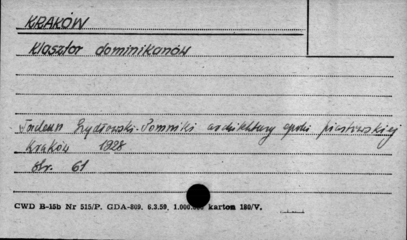 KRAKÓW
Klasztor dominikanów
Tadeusz Szydłowski. Pomniki architektury epoki piastowskiej
Kraków 1928
str. 61
CWD B-15b Nr 515/P. GDA-809. 6.3.59, 1.000.000 karton 180/V.